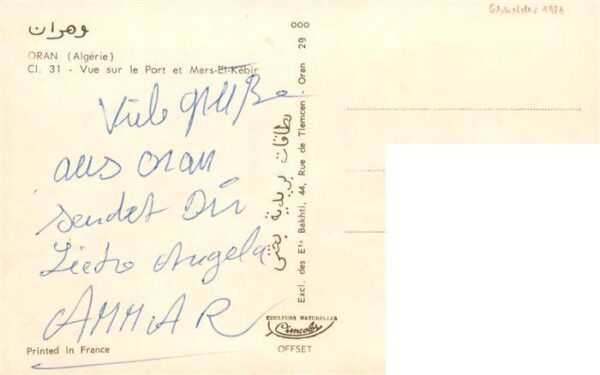 وهران
ORAN (Algérie)
Cl. 31 - Vue sur le Port et Mers-El-Kébir
Viele grüße
aus oran
sendet Dir
Angela
AMMAR
Printed in France
بطاقات بريدية بختي
Excl. des Ets Bakhti, 44, Rue de Tlemcen - Oran 29 000
COULEURS NATURELLES
Cimcolor
OFFSET
1983